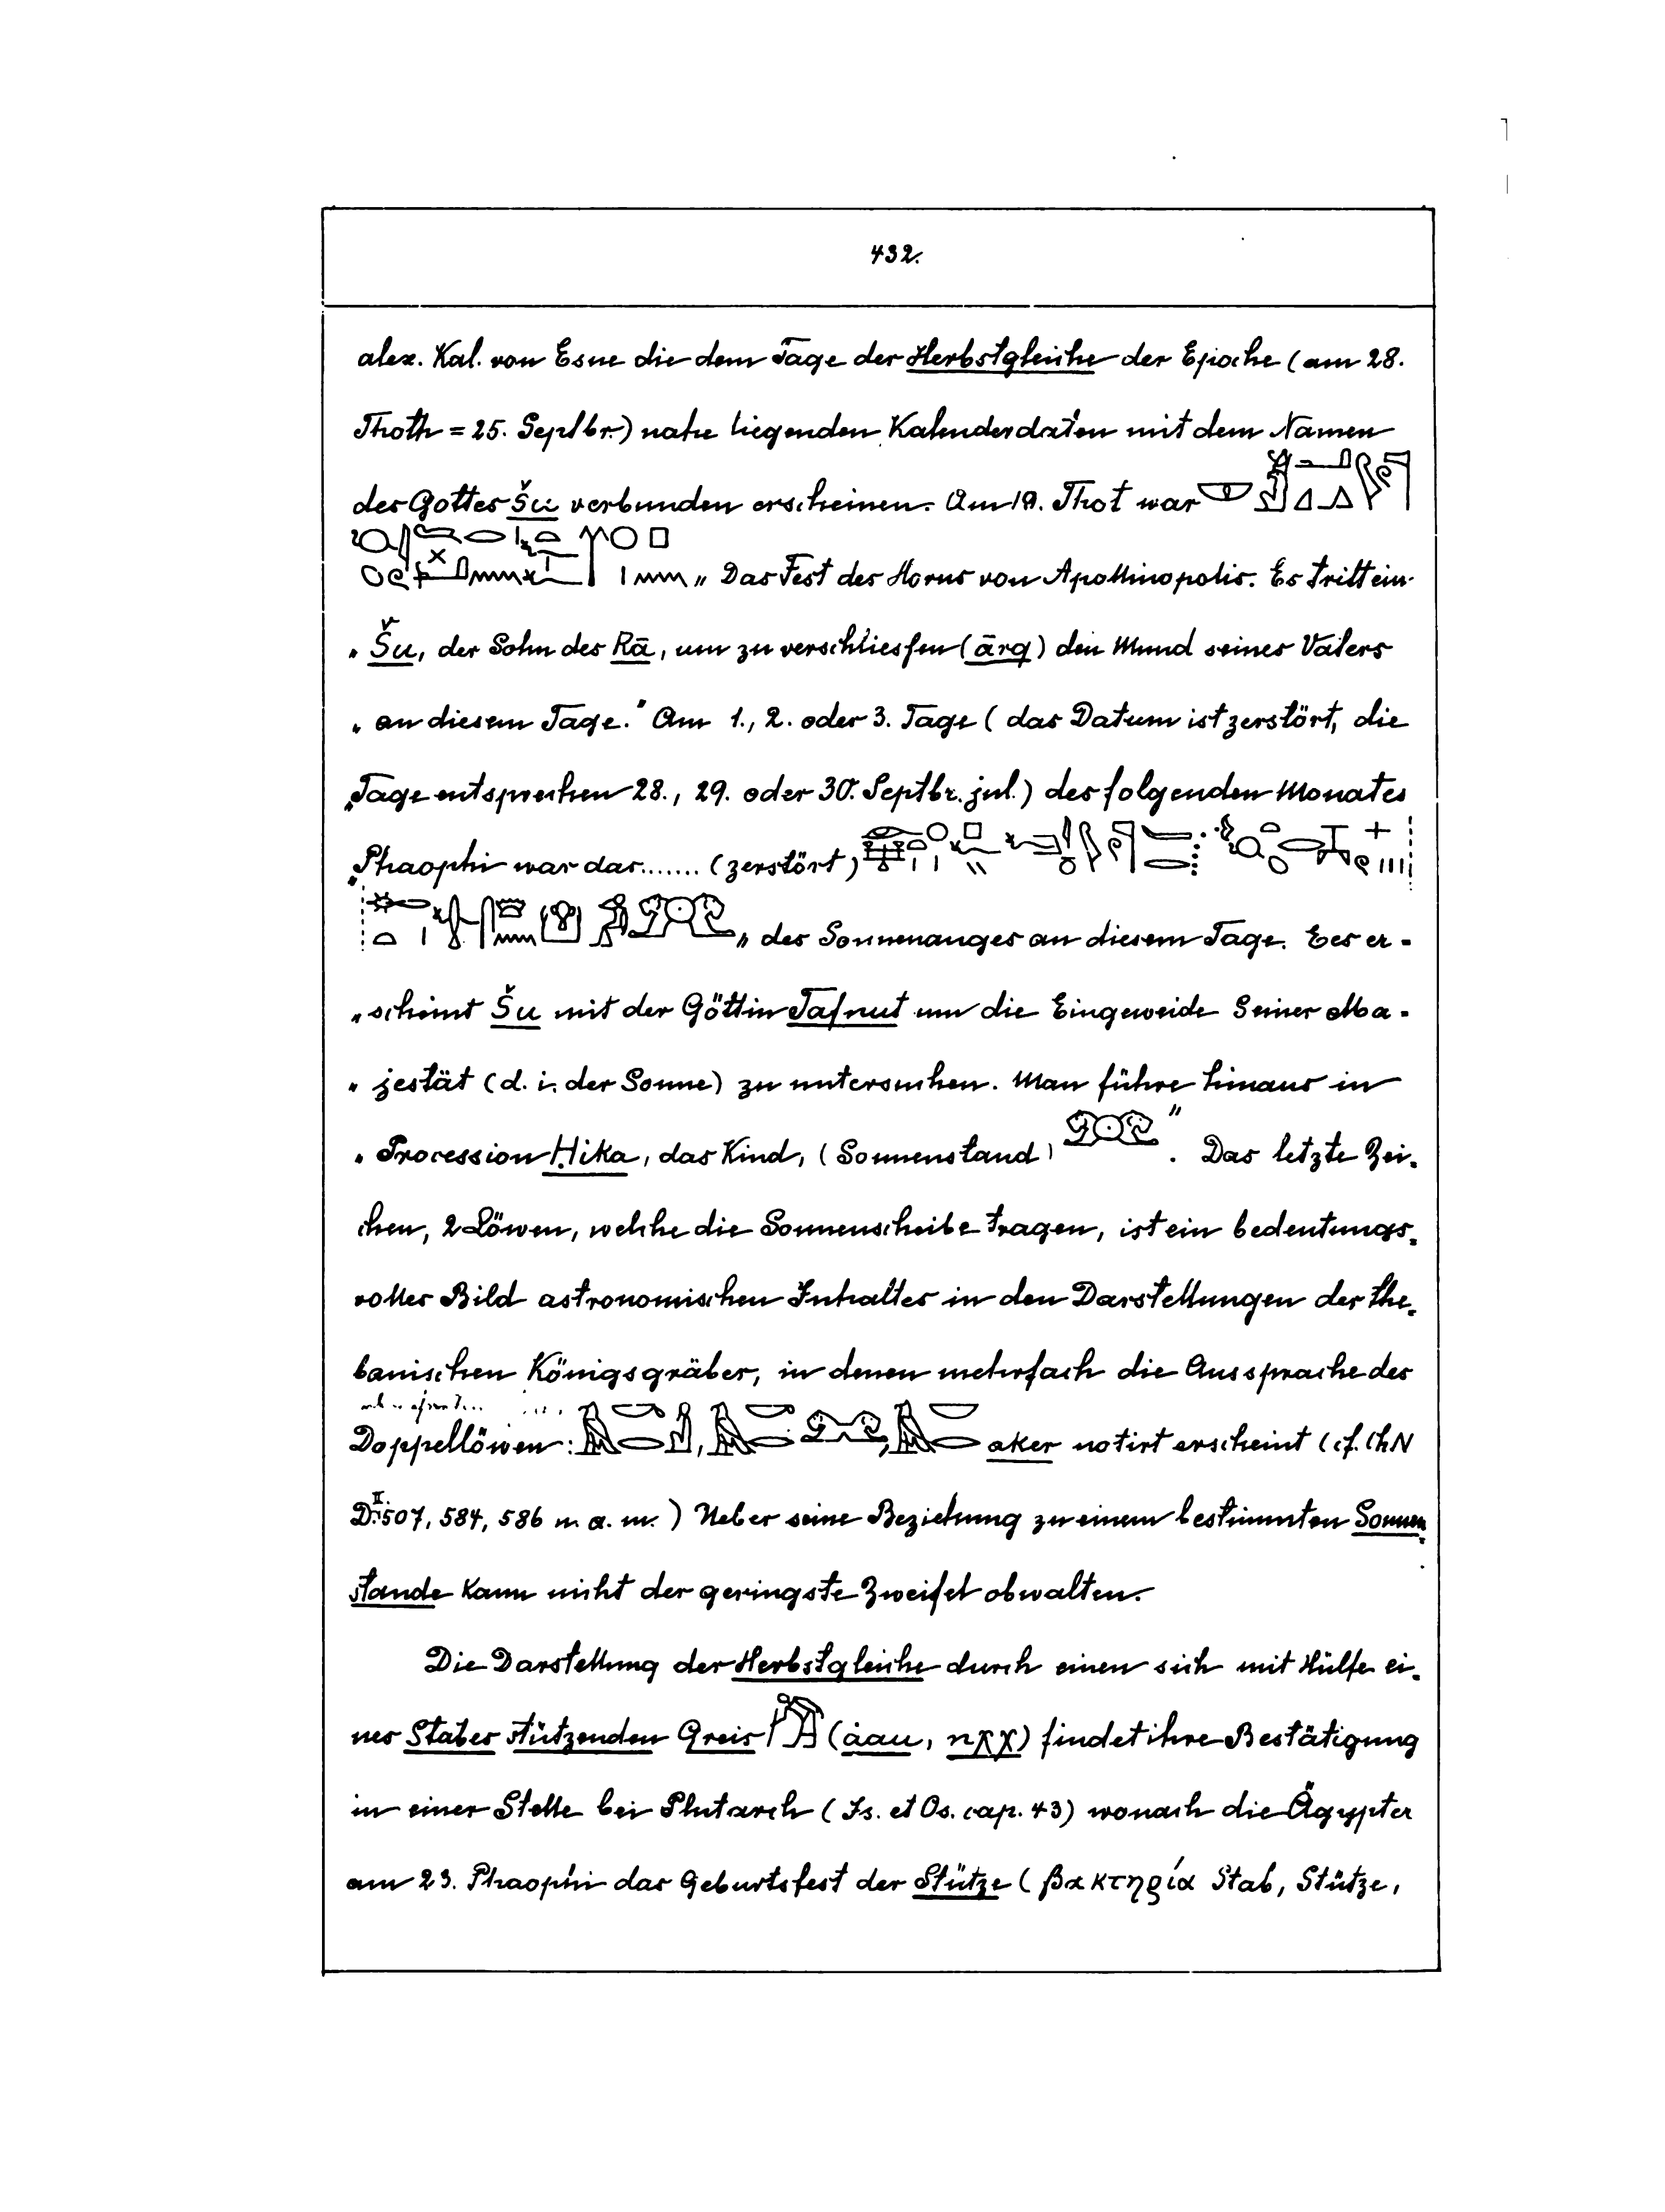 432.
alex. Kal. von Esne die dem Tage der Herbstgleiche der Epoche (am 28.
Thoth = 25. Septbr.) nahe liegenden Kalenderdaten mit dem Namen
des Gottes Šu verbunden erscheinen. Am 19. Thot war
„ Das Fest des Horus von Apollinopolis. Es tritt ein
„ Šu, der Sohn des Rā, um zu verschliessen (ārq) den Mund seines Vaters
„ an diesem Tage." Am 1., 2. oder 3. Tage ( das Datum ist zerstört, die
„Tage entsprechen 28., 29. oder 30. Septbr. jul.) des folgenden Monates
„Phaophi war das....... (zerstört)
„ des Sonnenauges an diesem Tage. Ees er-
„ scheint Šu mit der Göttin Tafnut um die Eingeweide Seiner Ma-
„ jestät (d. i. der Sonne) zu untersuchen. Man führe hinaus in
„ Procession Ḥika, das Kind, (Sonnenstand) ". Das letzte Zei-
chen, 2 Löwen, welche die Sonnenscheibe tragen, ist ein bedeutungs-
volles Bild astronomischen Inhaltes in den Darstellungen der the-
banischen Königsgräber, in denen mehrfach die Aussprache des
Doppellöwen: , , aker notirt erscheint (cf. Ch N
D. II 507, 584, 586 u. a. m. ) Ueber seine Beziehung zu einem bestimmten Sonnen-
stande kann nicht der geringste Zweifel obwalten.
Die Darstellung der Herbstgleiche durch einen sich mit Hülfe ei-
nes Stabes stützenden Greis (ȧau, nχχ) findet ihre Bestätigung
in einer Stelle bei Plutarch ( Is. et Os. cap. 43) wonach die Ägypter
am 23. Phaophi das Geburtsfest der Stütze ( βακτηρία Stab, Stütze,